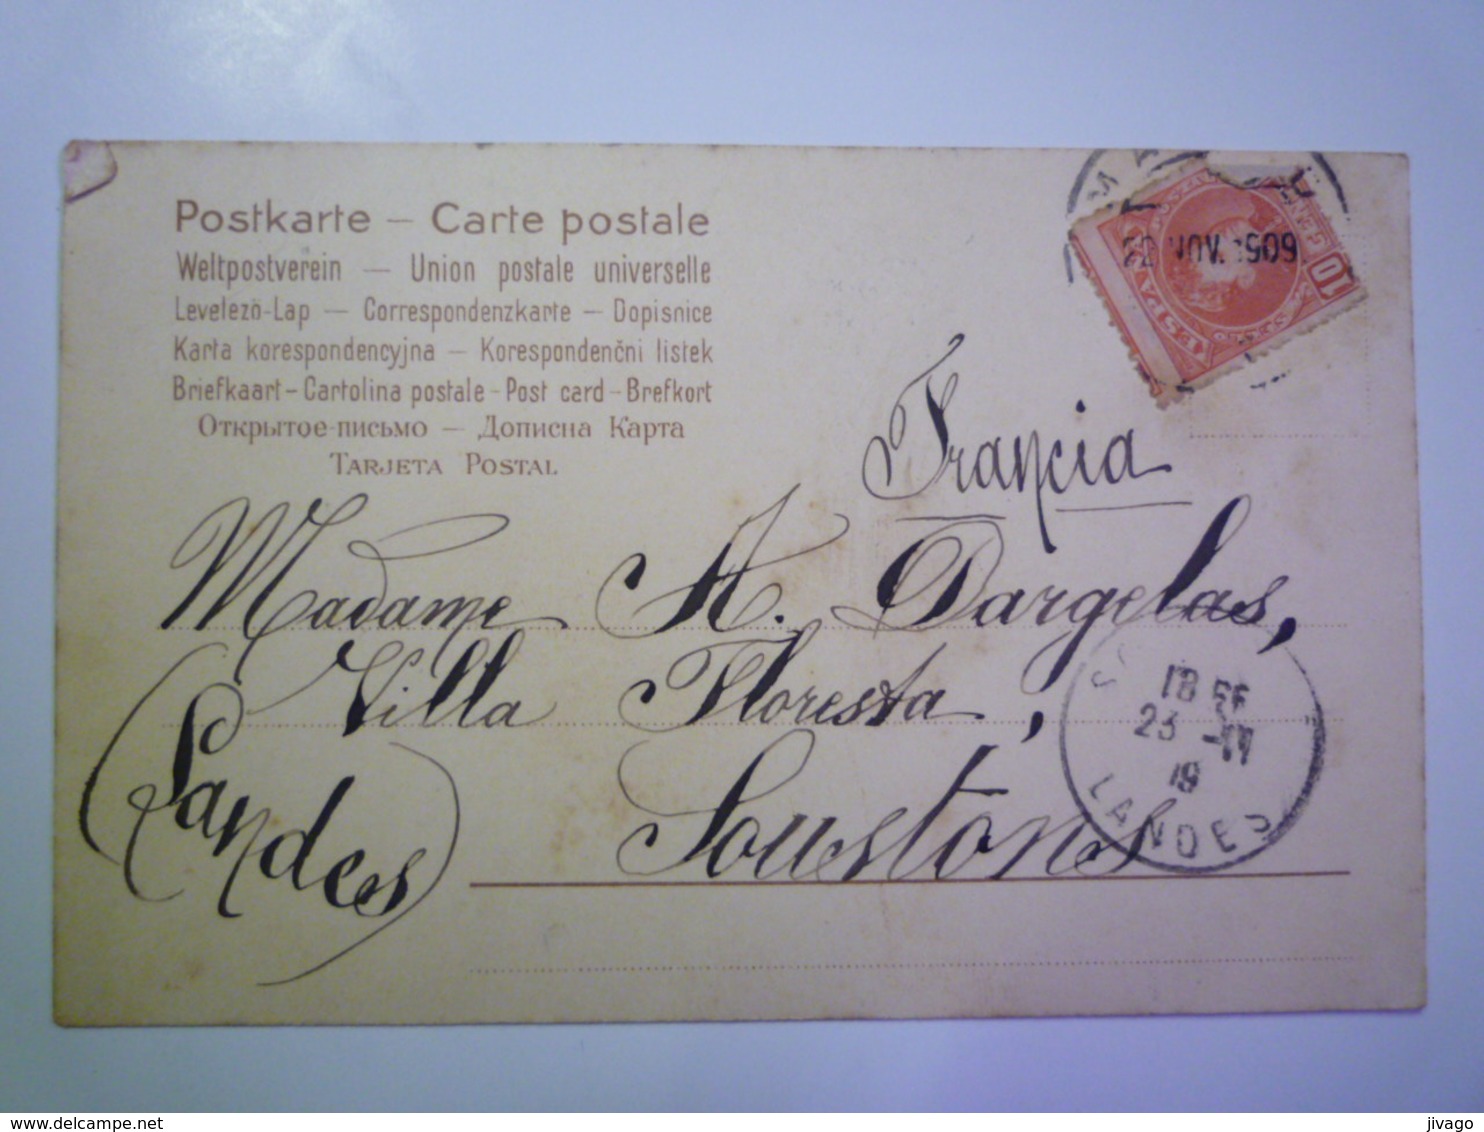 Postkarte – Carte postale
Weltpostverein — Union postale universelle
Levelezö-Lap — Correspondenzkarte – Dopisnice
Karta korespondencyjna – Korespondenčni listek
Briefkaart – Cartolina postale - Post card - Brefkort
Открытое письмо — Дописна Карта
Tarjeta Postal
22 NOV.
10
Francia
Madame A. Dargelas,
Villa Floresta,
Soustons
(Landes)
18
23 -11
19
LANDES
www.delcampe.net
jivago